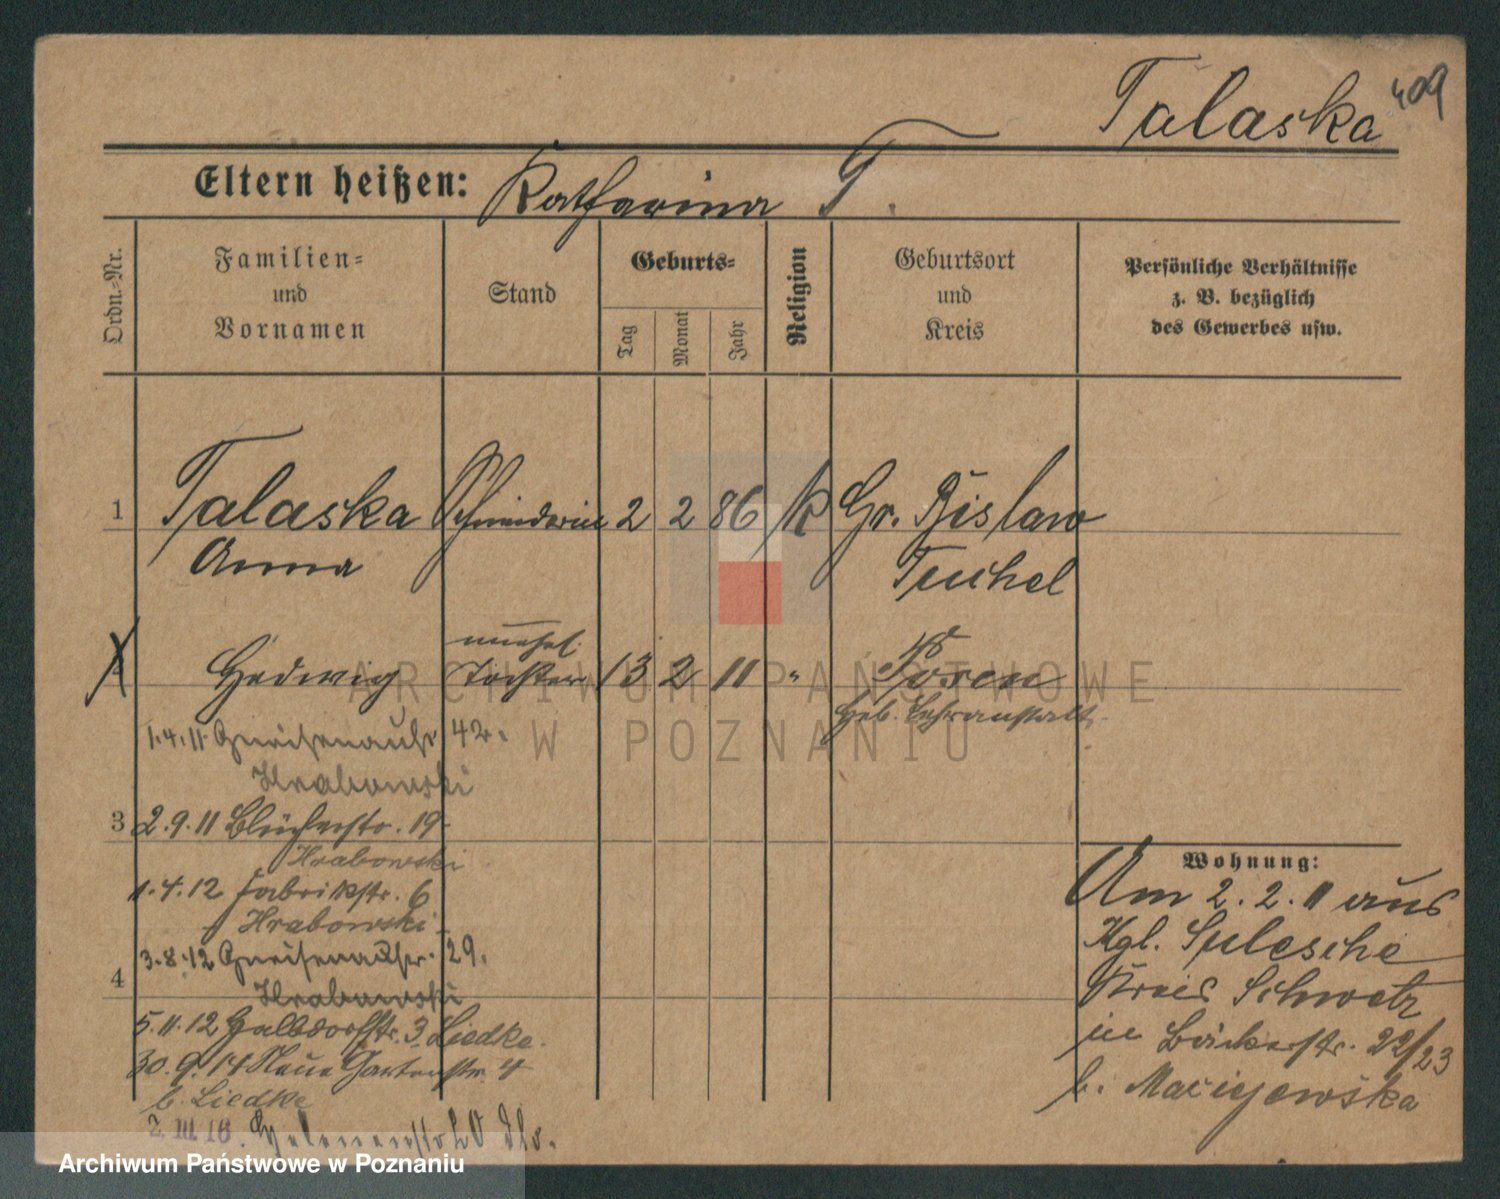 Talaska 409
Eltern heißen: Katharina T.
Ordn.-Nr.
Familien-
und
Vornamen
Stand
Geburts-
Tag
Monat
Jahr
Religion
Geburtsort
und
Kreis
Persönliche Verhältnisse
z. B. bezüglich
des Gewerbes usw.
1 Talaska Schneiderin 2 2 86 k Gr. Bislaw
Anna Tuchel
unehel.
Hedwig Tochter 13 2 11 " Posen
Heb. Lehranstalt.
1.4.11 Gneisenaustr 42.
Hrabowski
3 2.9.11 Blücherstr. 19
Hrabowski
1.4.12 Fabrikstr. 6
Hrabowski
3.8.12 Gneisenaustr. 29.
4 Hrabowski
5.11.12 Halbdorfstr. 3 Liedke.
30.9.14 Neue Gartenstr. 4
b. Liedke
2. III. 16. Helenenstr 20 dto.
Wohnung:
Am 2.2.11 aus
Kgl. Sulesche
Kreis Schwetz
in Bäckerstr. 22/23
b. Maciejewska
ARCHIWUM PAŃSTWOWE
W POZNANIU
Archiwum Państwowe w Poznaniu